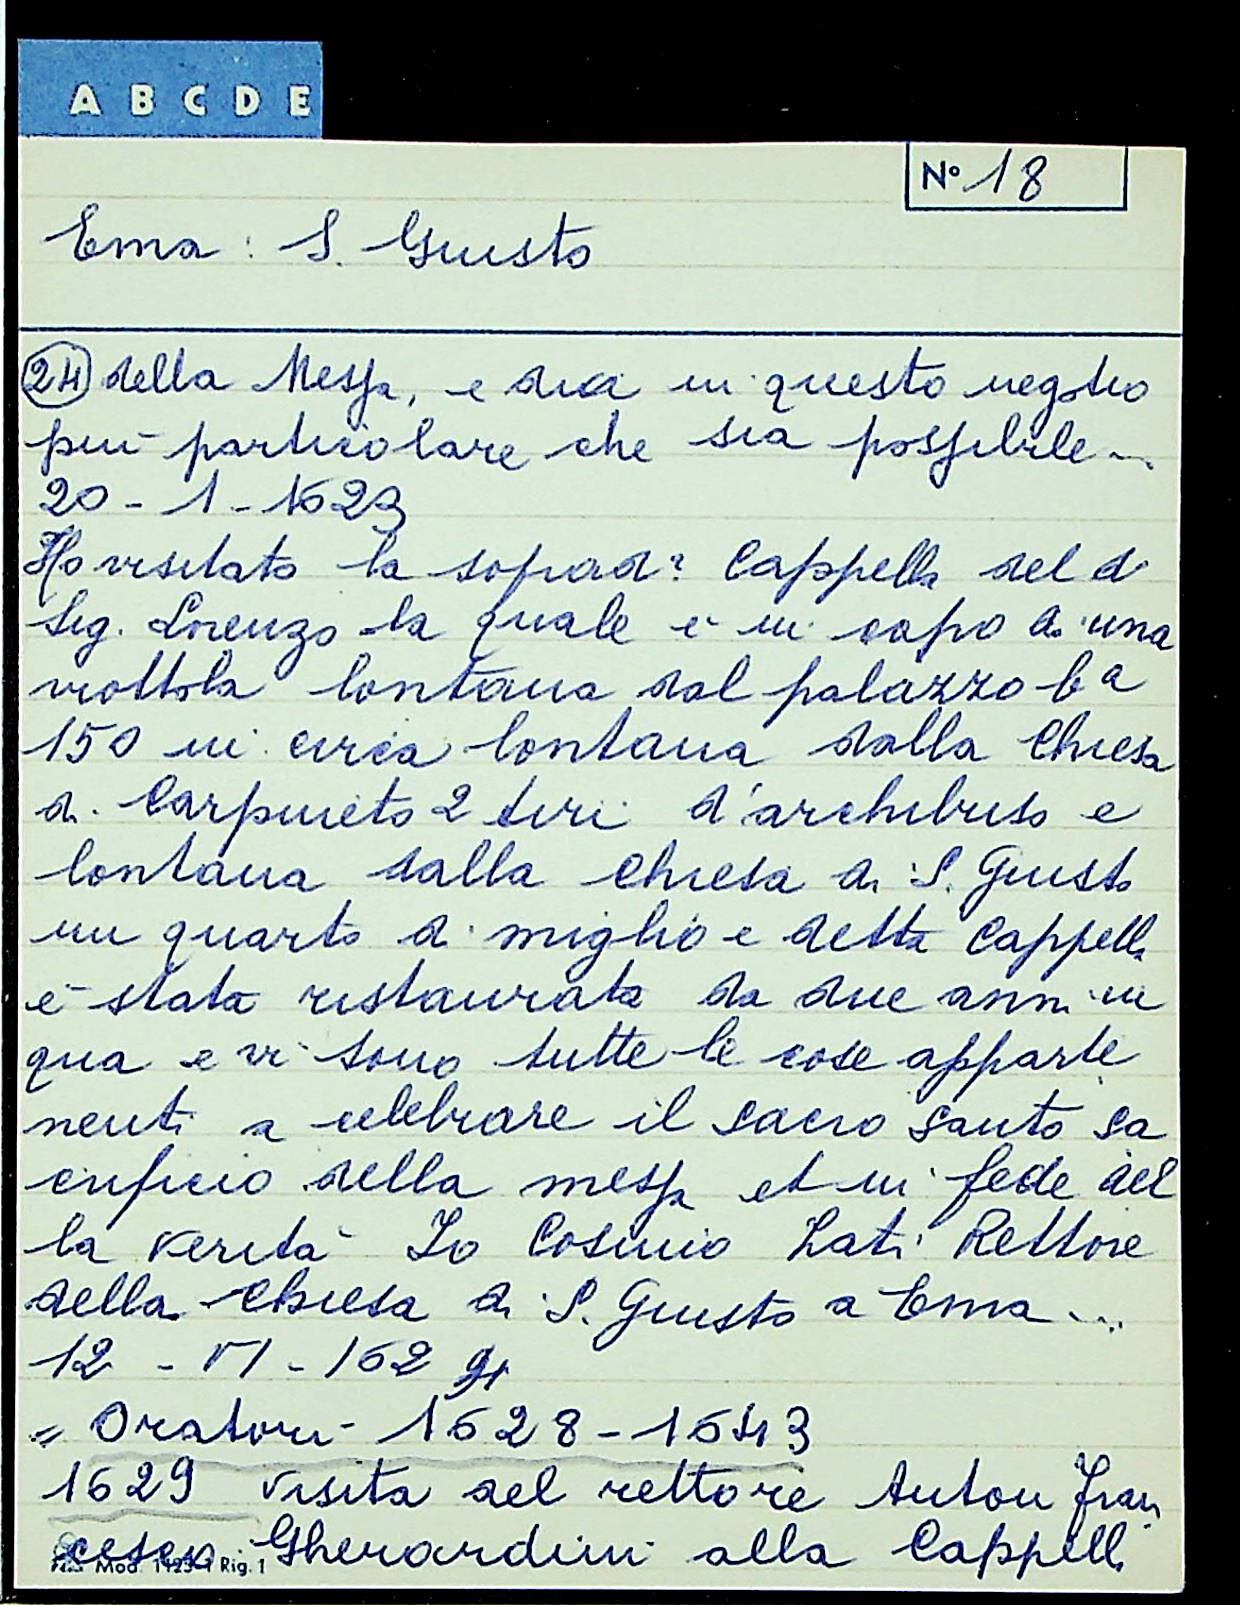 A B C D E
N° 18
Ema : S. Giusto
24 della Messa, e dica in questo negotio
più particolare che sia possibile...
20 - 1 - 1623
Ho visitato la soprad.ª Cappella del d.
Sig. Lorenzo la quale è in capo a una
viottola lontana dal palazzo b.ª
150 in circa lontana dalla Chiesa
di Carpineto 2 tiri d'archibuso e
lontana dalla Chiesa di S. Giusto
un quarto di miglio e detta Cappella
è stata restaurata da due anni in
qua e vi sono tutte le cose apparte
nenti a celebrare il sacro santo sa
crificio della messa et in fede del
la verità Io Cosimo Lati Rettore
della Chiesa di S. Giusto a Ema ...
12 - VI - 162
= Oratori - 1628 - 1643
1629 visita del rettore Anton Fran
cesco Gherardini alla Cappella
Mod. 1123-1 Rig. 1